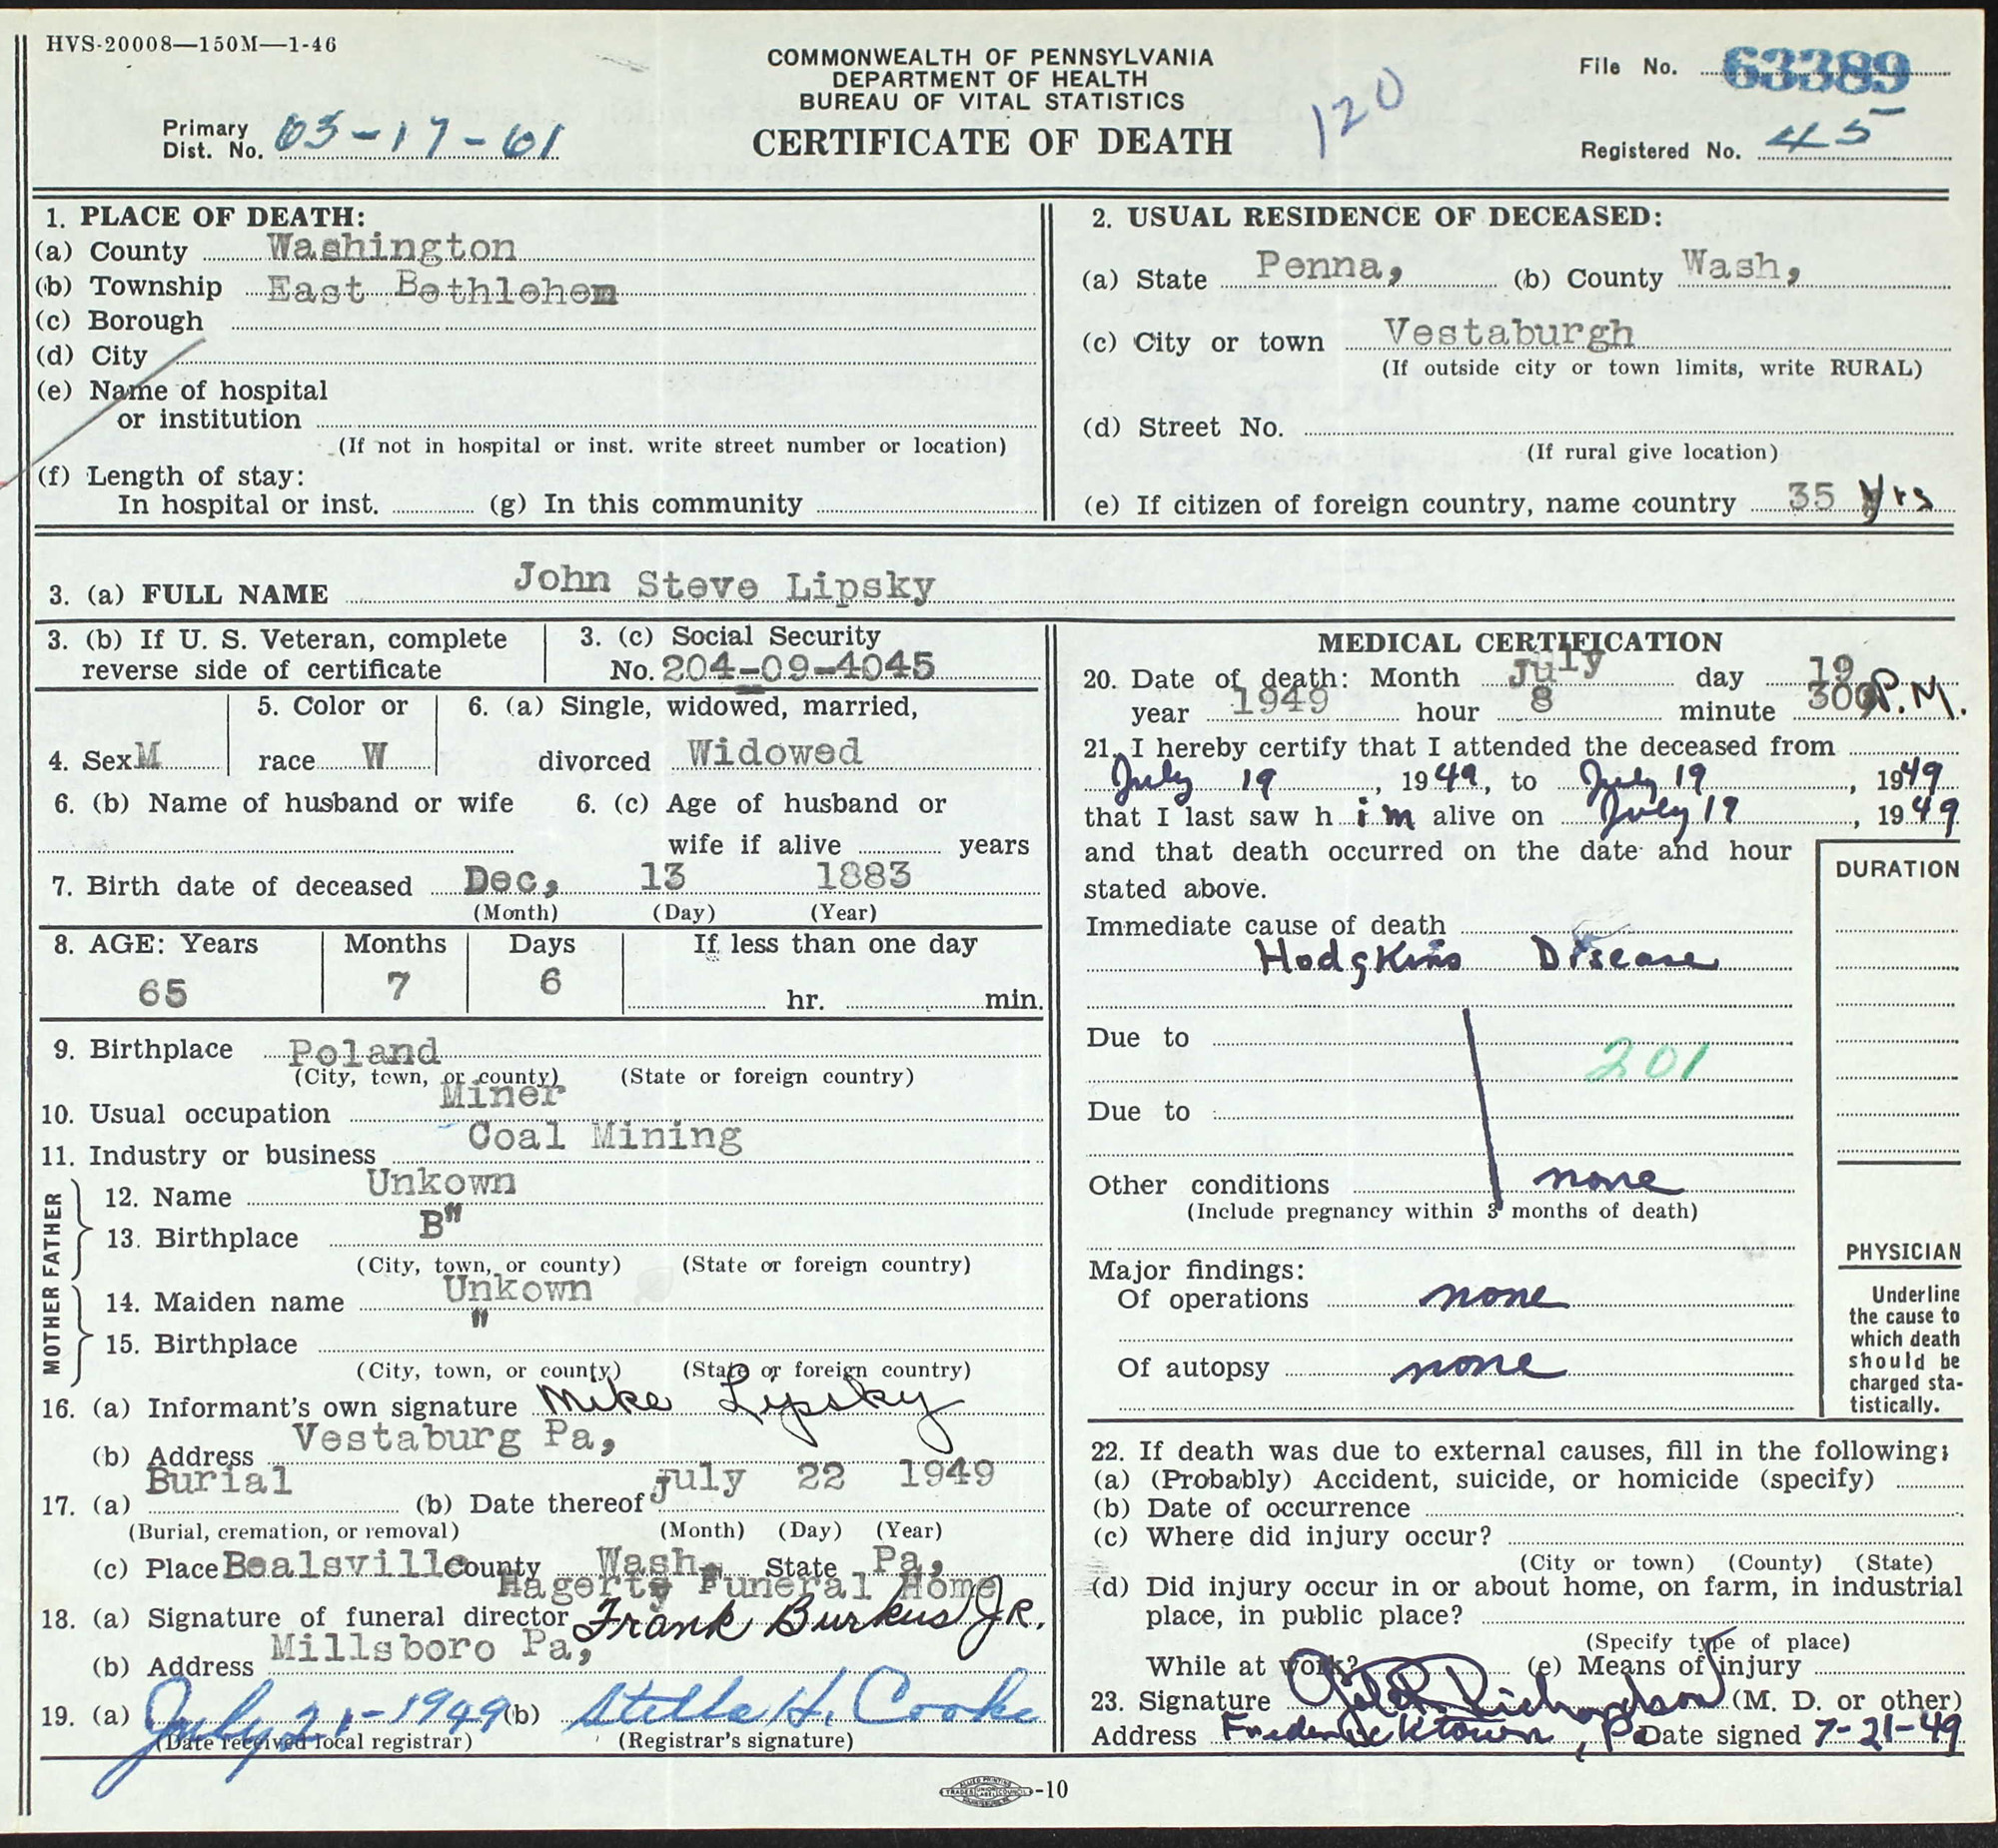 HVS-20008—150M—1-46
COMMONWEALTH OF PENNSYLVANIA
DEPARTMENT OF HEALTH
BUREAU OF VITAL STATISTICS
CERTIFICATE OF DEATH
120
File No. 63389
Primary
Dist. No. 63-17-61
Registered No. 45
1. PLACE OF DEATH:
(a) County Washington
(b) Township East Bethlehem
(c) Borough
(d) City
(e) Name of hospital
or institution
(If not in hospital or inst. write street number or location)
(f) Length of stay:
In hospital or inst. (g) In this community
2. USUAL RESIDENCE OF DECEASED:
(a) State Penna, (b) County Wash,
(c) City or town Vestaburgh
(If outside city or town limits, write RURAL)
(d) Street No.
(If rural give location)
(e) If citizen of foreign country, name country 35 yrs
3. (a) FULL NAME John Steve Lipsky
3. (b) If U. S. Veteran, complete
reverse side of certificate
3. (c) Social Security
No. 204-09-4045
4. Sex M
5. Color or
race W
6. (a) Single, widowed, married,
divorced Widowed
6. (b) Name of husband or wife
6. (c) Age of husband or
wife if alive years
7. Birth date of deceased Dec, 13 1883
(Month) (Day) (Year)
8. AGE: Years Months Days If less than one day
65 7 6 hr. min.
9. Birthplace Poland
(City, town, or county) (State or foreign country)
10. Usual occupation Miner
11. Industry or business Coal Mining
FATHER
12. Name Unkown
13. Birthplace B"
(City, town, or county) (State or foreign country)
MOTHER
14. Maiden name Unkown
15. Birthplace "
(City, town, or county) (State or foreign country)
16. (a) Informant's own signature Mike Lipsky
(b) Address Vestaburg Pa,
17. (a) Burial (b) Date thereof July 22 1949
(Burial, cremation, or removal) (Month) (Day) (Year)
(c) Place Bealsville County Wash, State Pa,
Hagerty Funeral Home
18. (a) Signature of funeral director Frank Burkus Jr.
(b) Address Millsboro Pa,
19. (a) July 21-1949 (b) Stella H. Cooke
(Date received local registrar) (Registrar's signature)
MEDICAL CERTIFICATION
20. Date of death: Month July day 19
year 1949 hour 8 minute 300 P.M.
21. I hereby certify that I attended the deceased from
July 19, 1949, to July 19, 1949
that I last saw h im alive on July 19, 1949
and that death occurred on the date and hour
stated above.
DURATION
Immediate cause of death
Hodgkins Disease
Due to
201
Due to
Other conditions none
(Include pregnancy within 3 months of death)
Major findings:
Of operations none
Of autopsy none
PHYSICIAN
Underline
the cause to
which death
should be
charged sta-
tistically.
22. If death was due to external causes, fill in the following:
(a) (Probably) Accident, suicide, or homicide (specify)
(b) Date of occurrence
(c) Where did injury occur?
(City or town) (County) (State)
(d) Did injury occur in or about home, on farm, in industrial
place, in public place?
(Specify type of place)
While at work? (e) Means of injury
23. Signature Richardson (M. D. or other)
Address Fredericktown, Pa Date signed 7-21-49
-10